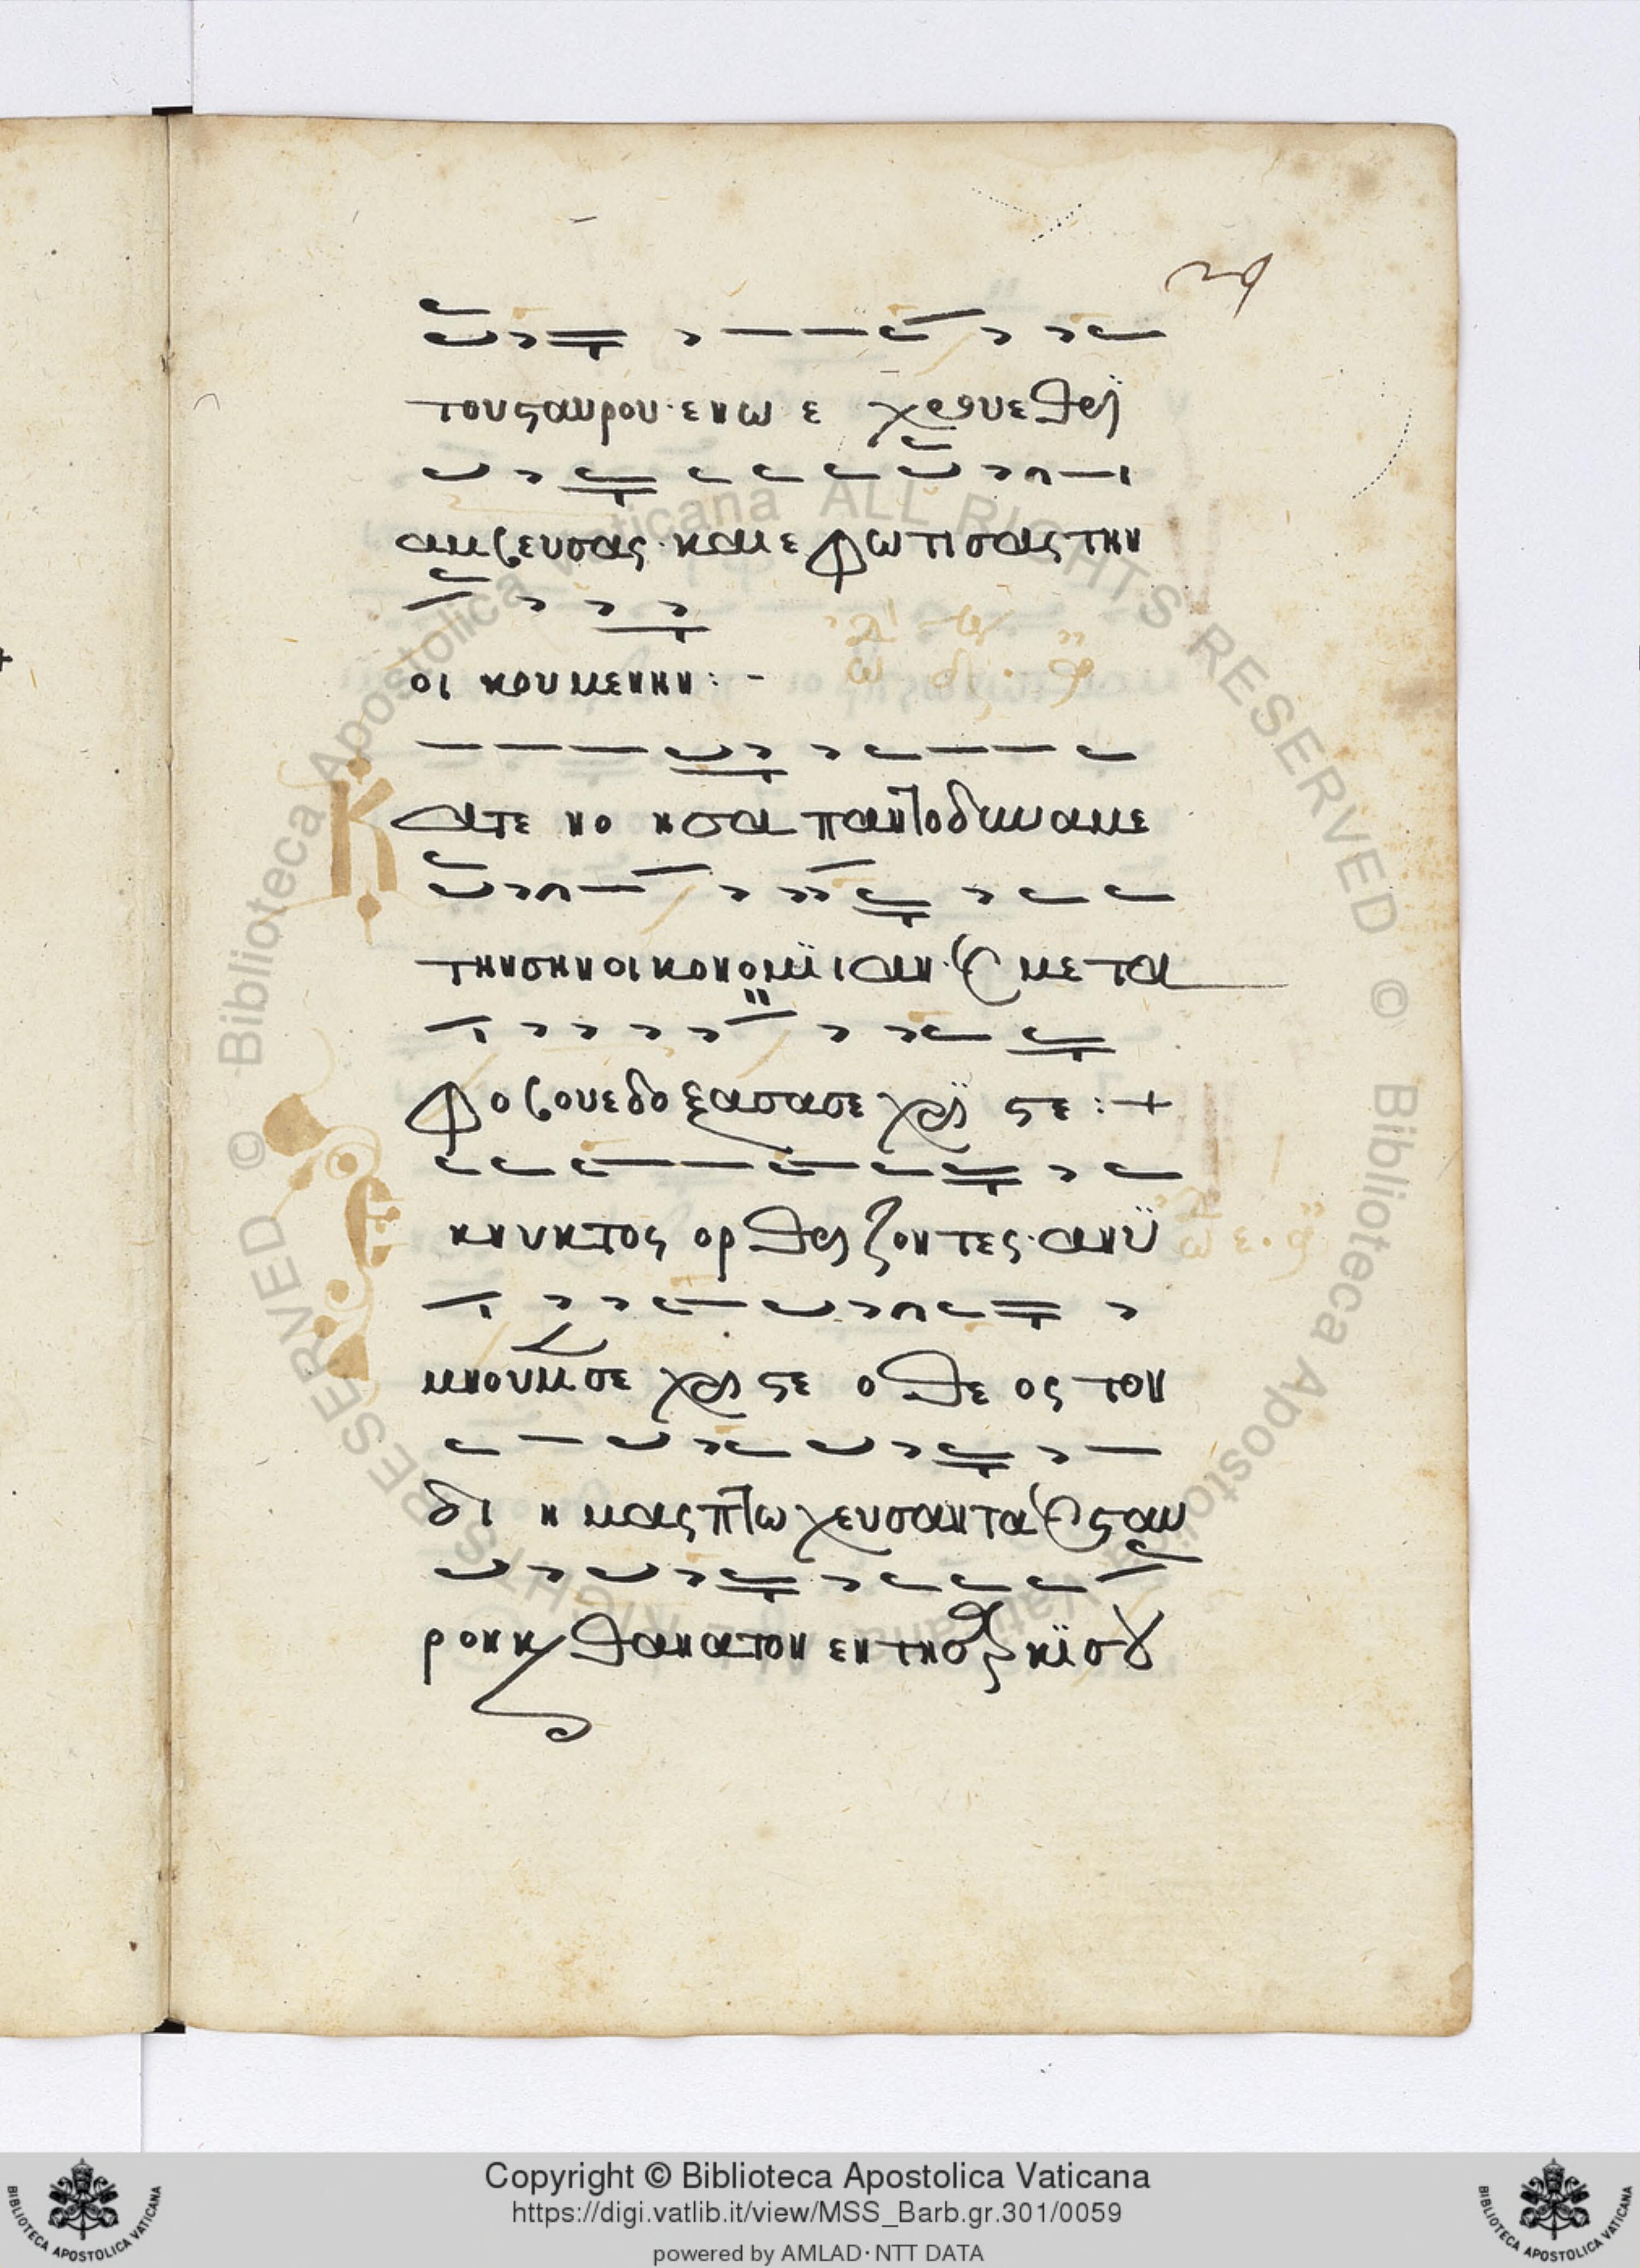 29
του ϛαυρου· εν ω ε χερουβει
αμβευσας· και εφωτισας την
οι κουμενην :-
ωδ δ
Κ ατε νο ησα παντοδυναμε
την σην οικονομϊιαν· κ με τα
φοβου εδοξασα σε χρι ϛε :+
Ε κ νυκτος ορθρι ζοντες· ανϋ
ωδ ε·
μνουμ σε χρι ϛε ο θε ος τον
δι η μας πτω χευσαντα κ ϛαυ
ρον κ θανατον εν τη σαρκϊ σου
Biblioteca Apostolica Vaticana ALL RIGHTS RESERVED ©
Copyright © Biblioteca Apostolica Vaticana
https://digi.vatlib.it/view/MSS_Barb.gr.301/0059
powered by AMLAD · NTT DATA
BIBLIOTECA APOSTOLICA VATICANA
BIBLIOTECA APOSTOLICA VATICANA